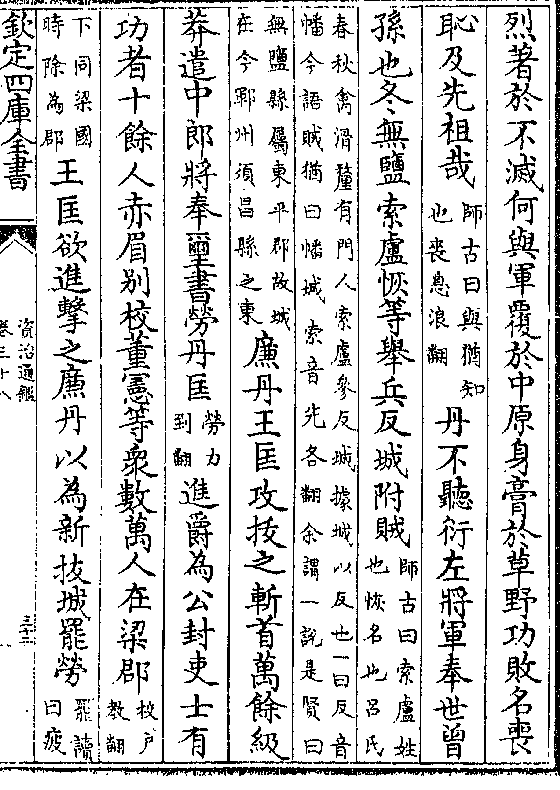 烈著於不滅何與軍覆於中原身膏於草野功敗名喪
恥及先祖哉師古曰與猶知也喪息浪翻丹不聽衍左將軍奉世曾
孫也冬無鹽索盧恢等舉兵反城附賊師古曰索盧姓也恢名也呂氏
春秋禽滑釐有門人索盧參反城據城以反也一曰反音
幡今語賊猶曰幡城索音先各翻余謂一說是賢曰
無鹽縣屬東平郡故城在今鄆州須昌縣之東廉丹王匡攻拔之斬首萬餘級
莽遣中郎將奉璽書勞丹匡勞力到翻進爵為公封吏士有
功者十餘人赤眉别校董憲等衆數萬人在梁郡校戶教翻
下同梁國時除為郡王匡欲進擊之廉丹以為新拔城罷勞罷讀曰疲
欽定四庫全書
資治通鑑
卷三十八